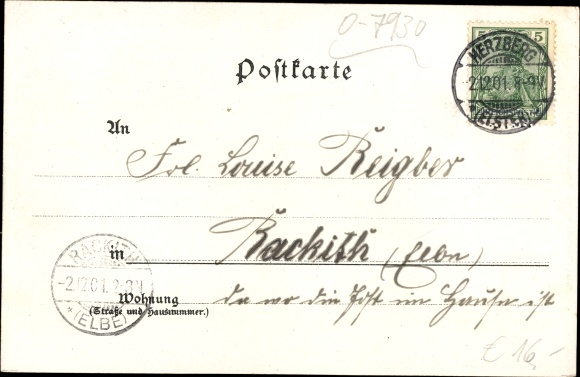 O-7930
5 5
HERZBERG
2.12.01. 8-9V.
*(ELSTER)
Postkarte
An
Frl. Louise Reigber
in Rackith (Elbe)
RACKITH
-2.12.01. 2-3N
*(ELBE)
Wohnung
(Straße und Hausnummer.)
da wo die Post im Hause ist
€ 16,-